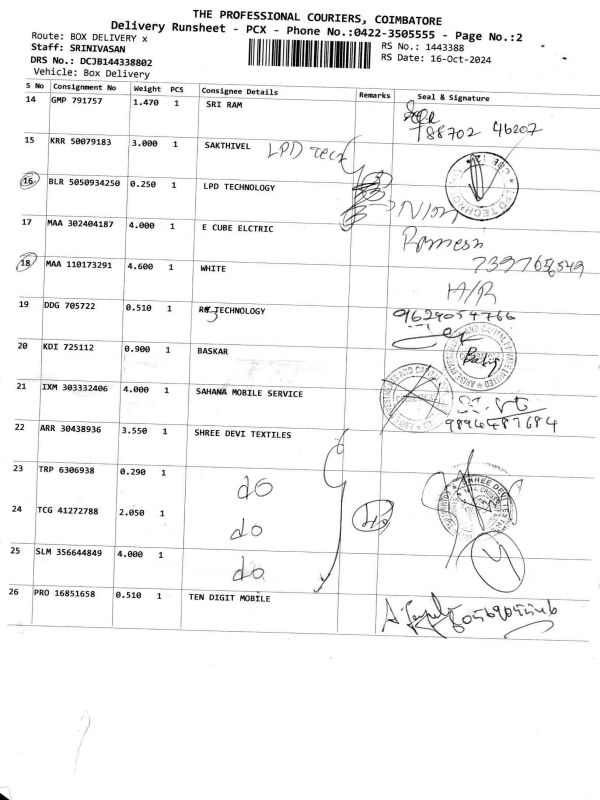 THE PROFESSIONAL COURIERS, COIMBATORE
Delivery Runsheet - PCX - Phone No.:0422-3505555 - Page No.:2
Route: BOX DELIVERY x
RS No.: 1443388
Staff: SRINIVASAN
RS Date: 16-Oct-2024
DRS No.: DCJB144338802
Vehicle: Box Delivery
S No Consignment No Weight PCS Consignee Details Remarks Seal & Signature
14 GMP 791757 1.470 1 SRI RAM
788702 46207
15 KRR 50079183 3.000 1 SAKTHIVEL LPD Tech
16 BLR 5050934250 0.250 1 LPD TECHNOLOGY
17 MAA 302404187 4.000 1 E CUBE ELCTRIC Ramesh
18 MAA 110173291 4.600 1 WHITE
19 DDG 705722 0.510 1 TECHNOLOGY 9629054766
20 KDI 725112 0.900 1 BASKAR
21 IXM 303332406 4.000 1 SAHANA MOBILE SERVICE
9894487684
22 ARR 30438936 3.550 1 SHREE DEVI TEXTILES
23 TRP 6306938 0.290 1 do
SHREE DEVI TEX
24 TCG 41272788 2.050 1 do
25 SLM 356644849 4.000 1 do
26 PRO 16851658 0.510 1 TEN DIGIT MOBILE